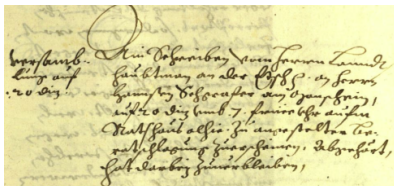 versamb-
lung auf
20 diz
Ain Schreiben von Herren Lanndt
haubtman an der Etsch, an Herrn
auf 20 diz umb 7, frue Uhr aufm
Rathaus alhie zu angestelter be-
ratschlagung zuerscheinen, abgehört,
hat darbey zuverbleiben,